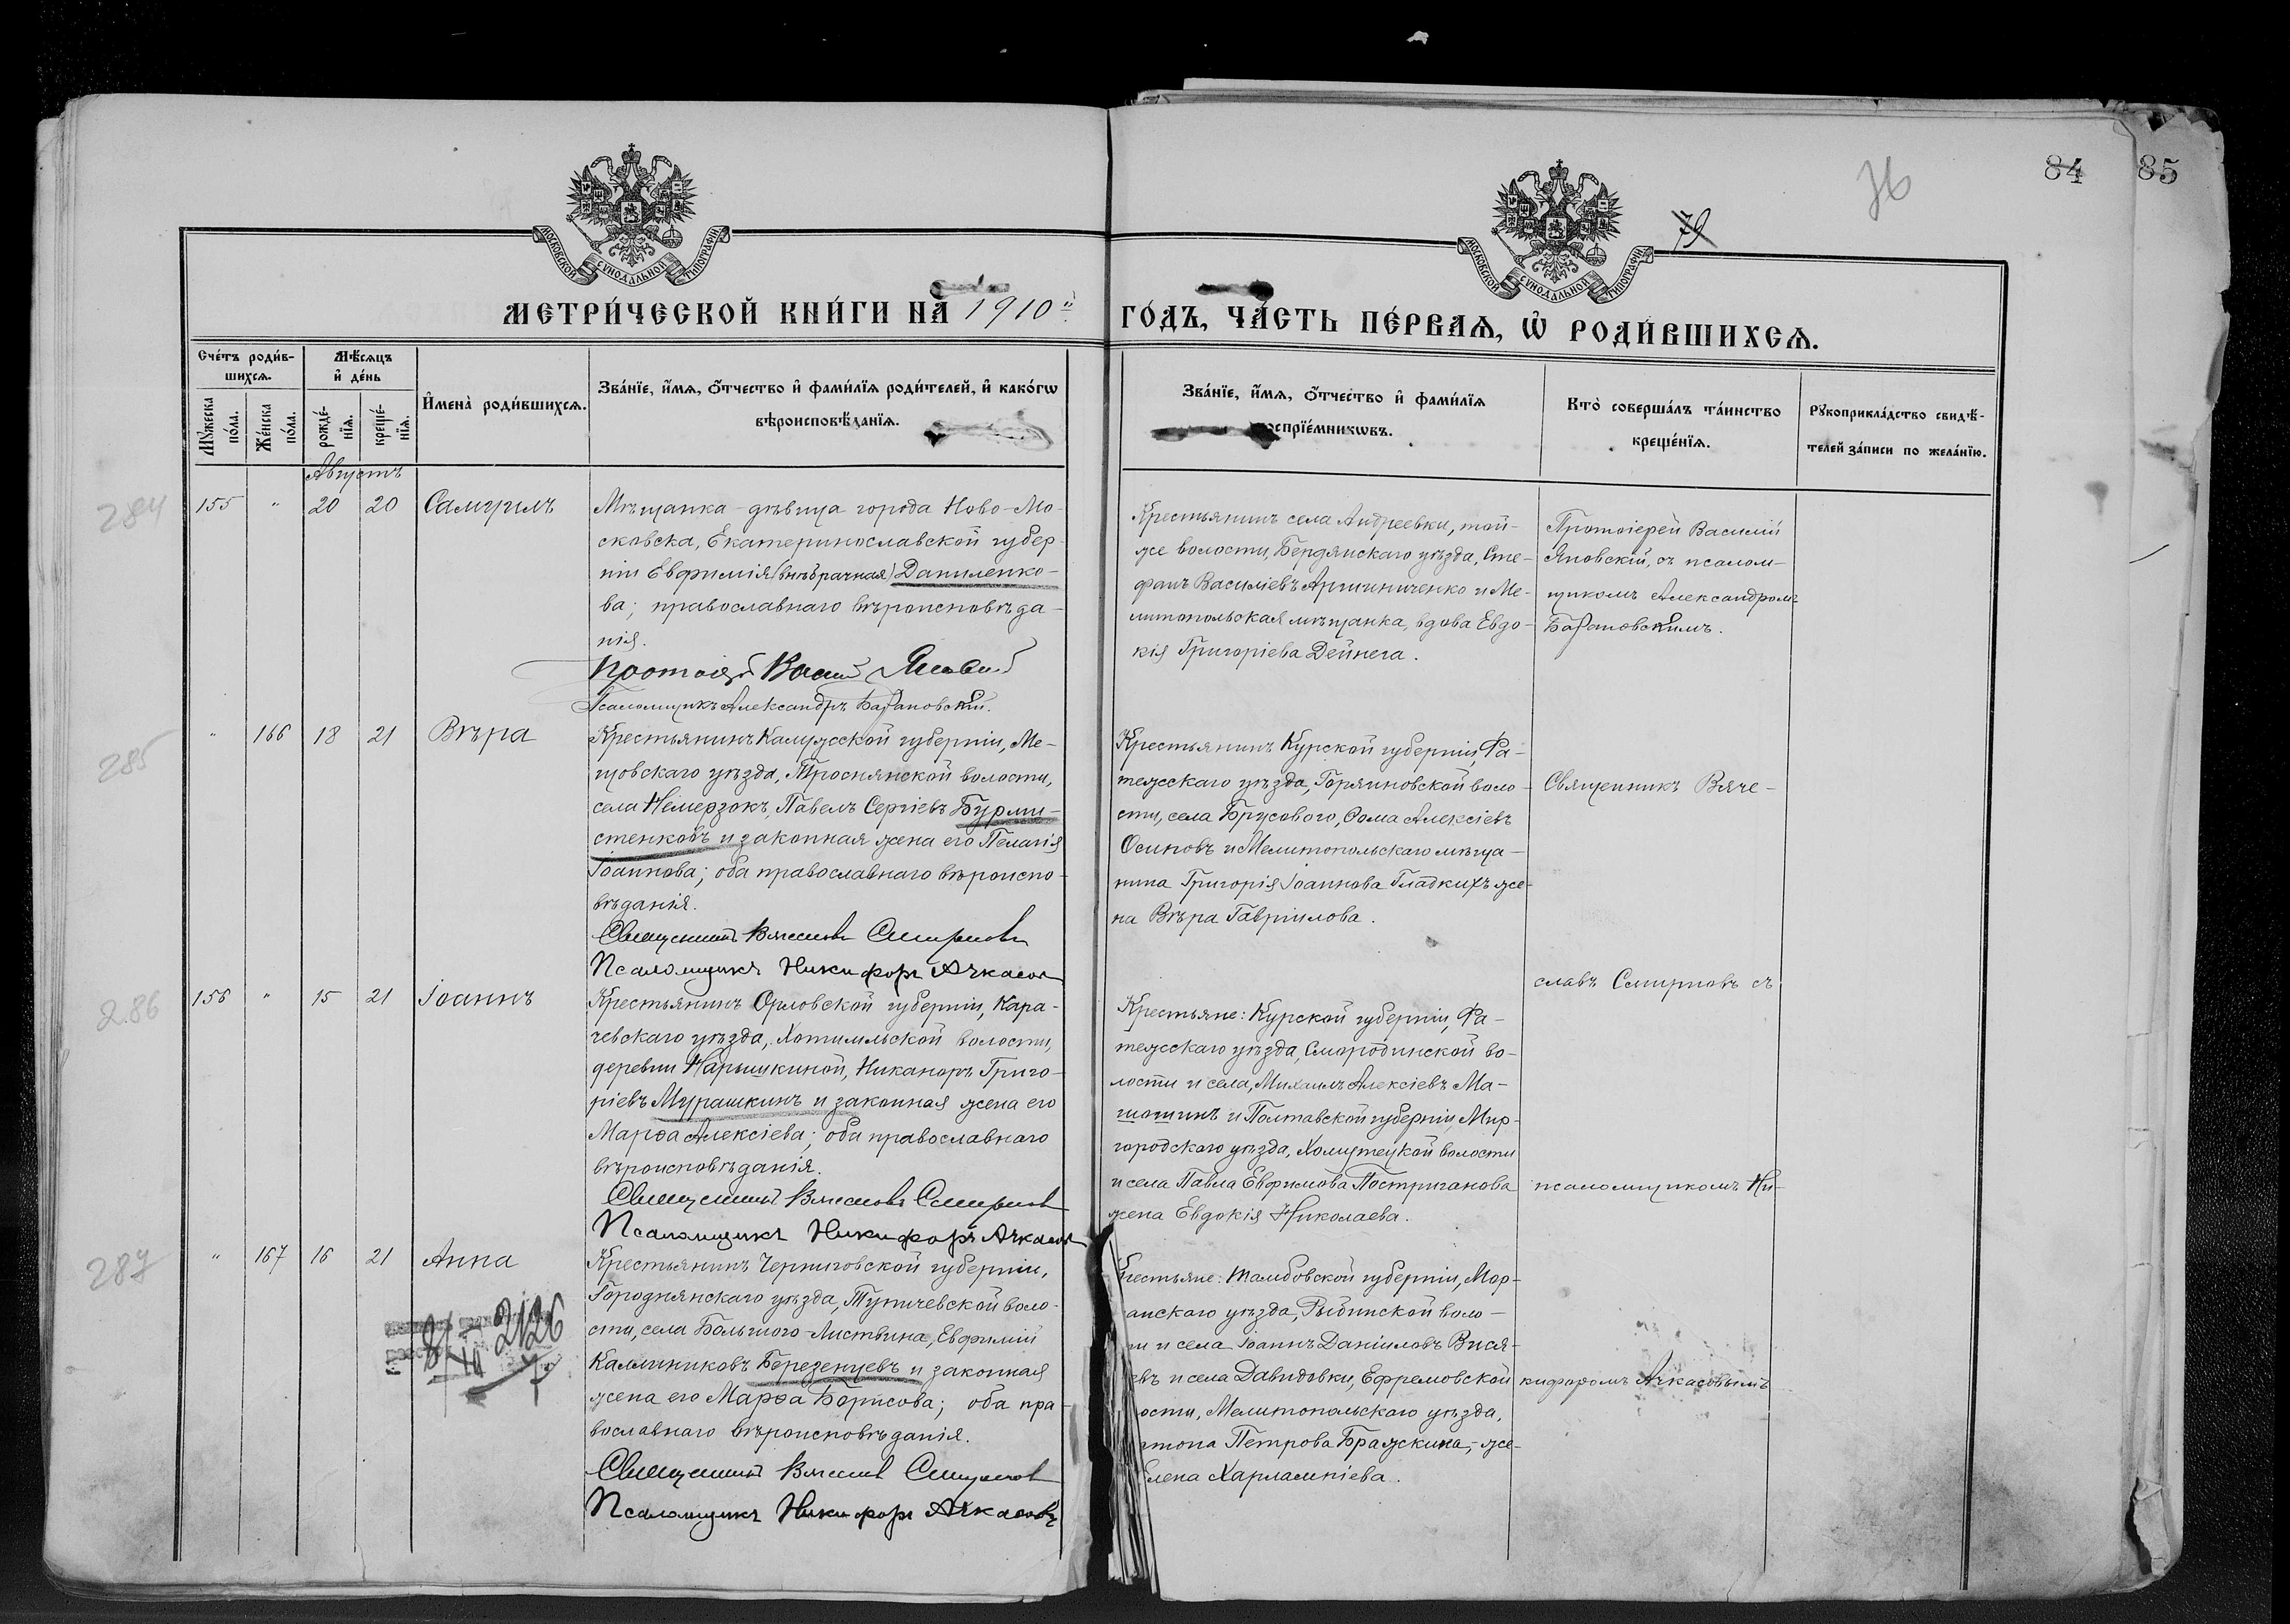 76
84 85
79
МОСКОВСКОЙ СѴНОДАЛЬНОЙ ТИПОГРАФІИ
МОСКОВСКОЙ СѴНОДАЛЬНОЙ ТИПОГРАФІИ
МЕТРИ́ЧЕСКОЙ КНИ́ГИ НА̀ 1910й
ГО́ДЪ, ЧА́СТЬ ПЕ́РВАѦ, Ѡ҆ РОДИ́ВШИХСѦ.
Сче́тъ роди́в-
шихсѧ.
Мꙋ́жеска по́ла.
Же́нска по́ла.
Мѣ́сѧцъ
и҆ де́нь
рожде́-
нїѧ.
креще́-
нїѧ.
И҆мена̀ роди́вшихсѧ.
Зва́нїе, и҆́мѧ, ѻ҆́тчество и҆ фами́лїѧ роди́телей, и҆ како́гѡ
вѣроисповѣ́данїѧ.
Зва́нїе, и҆́мѧ, ѻ҆́тчество и҆ фами́лїѧ
воспрїе́мникѡвъ.
Кто̀ соверша́лъ та́инство
креще́нїѧ.
Рꙋкоприкла́дство свидѣ́-
телей за́писи по жела́нїю.
Августъ
284
155 " 20 20 Самуилъ
Мѣщанка-дѣвица города Ново-Мо-
сковска, Екатеринославской губер-
ніи Евфимія (внѣбрачная) Даниленко-
ва; православнаго вѣроисповѣда-
нія.
Протоіерей Василій Яновскій
Псаломщикъ Александръ Барановскій.
Крестьянинъ села Андреевки, той-
же волости, Бердянскаго уѣзда, Сте-
фанъ Василіевъ Аршинниченко и Ме-
литопольская мѣщанка, вдова Евдо-
кія Григоріева Дейнега.
Протоіерей Василій
Яновскій, съ псалом-
щикомъ Александромъ
Барановскимъ.
285
" 166 18 21 Вѣра
Крестьянинъ Калужской губерніи, Ме-
щовскаго уѣзда, Троснянской волости,
села Немерзокъ, Павелъ Сергіевъ Бурми-
стенковъ и законная жена его Пелагія
Іоаннова; оба православнаго вѣроиспо-
вѣданія.
Священникъ Вячеславъ Смирновъ
Псаломщикъ Никифоръ Ачкасов
Крестьянинъ Курской губерніи, Фа-
тежскаго уѣзда, Горяиновской воло-
сти, села Брусового, Ѳома Алексіевъ
Осиповъ и Мелитопольскаго мѣща-
нина Григорія Іоаннова Гладкихъ же-
на Вѣра Гавріилова.
Священникъ Вяче-
славъ Смирновъ съ
286
156 " 15 21 Іоаннъ
Крестьянинъ Орловской губерніи, Кара-
чевскаго уѣзда, Хотимльской волости,
деревни Нарышкиной, Никаноръ Григо-
ріевъ Мурашкинъ и законная жена его
Марѳа Алексіева; оба православнаго
вѣроисповѣданія.
Священникъ Вячеславъ Смирнов
Псаломщикъ Никифоръ Ачкасов
Крестьяне: Курской губерніи, Фа-
тежскаго уѣзда, Смородинской во-
лости и села, Михаилъ Алексіевъ Ма-
шошинъ и Полтавской губерніи, Мир-
городскаго уѣзда, Хомутецкой волости
и села Павла Евфимова Постриганова
жена Евдокія Николаева.
псаломщикомъ Ни-
287
" 167 16 21 Анна
Крестьянинъ Черниговской губерніи,
Городнянскаго уѣзда, Тупичевской воло-
сти, села Большого-Листвина, Евфимій
Каллиниковъ Березенцевъ и законная
жена его Марѳа Борисова; оба пра-
вославнаго вѣроисповѣданія.
Священникъ Вячеслав Смирнов
Псаломщикъ Никифоръ Ачкасовъ
рестьяне: Тамбовской губерніи, Мор-
анскаго уѣзда, Рыбинской воло-
и и села Іоаннъ Даніиловъ Вися-
евъ и села Давидовки, Ефремовской
ости, Мелитопольскаго уѣзда,
тона Петрова Бражкина, же-
Елена Харлампіева.
кифоромъ Ачкасовымъ